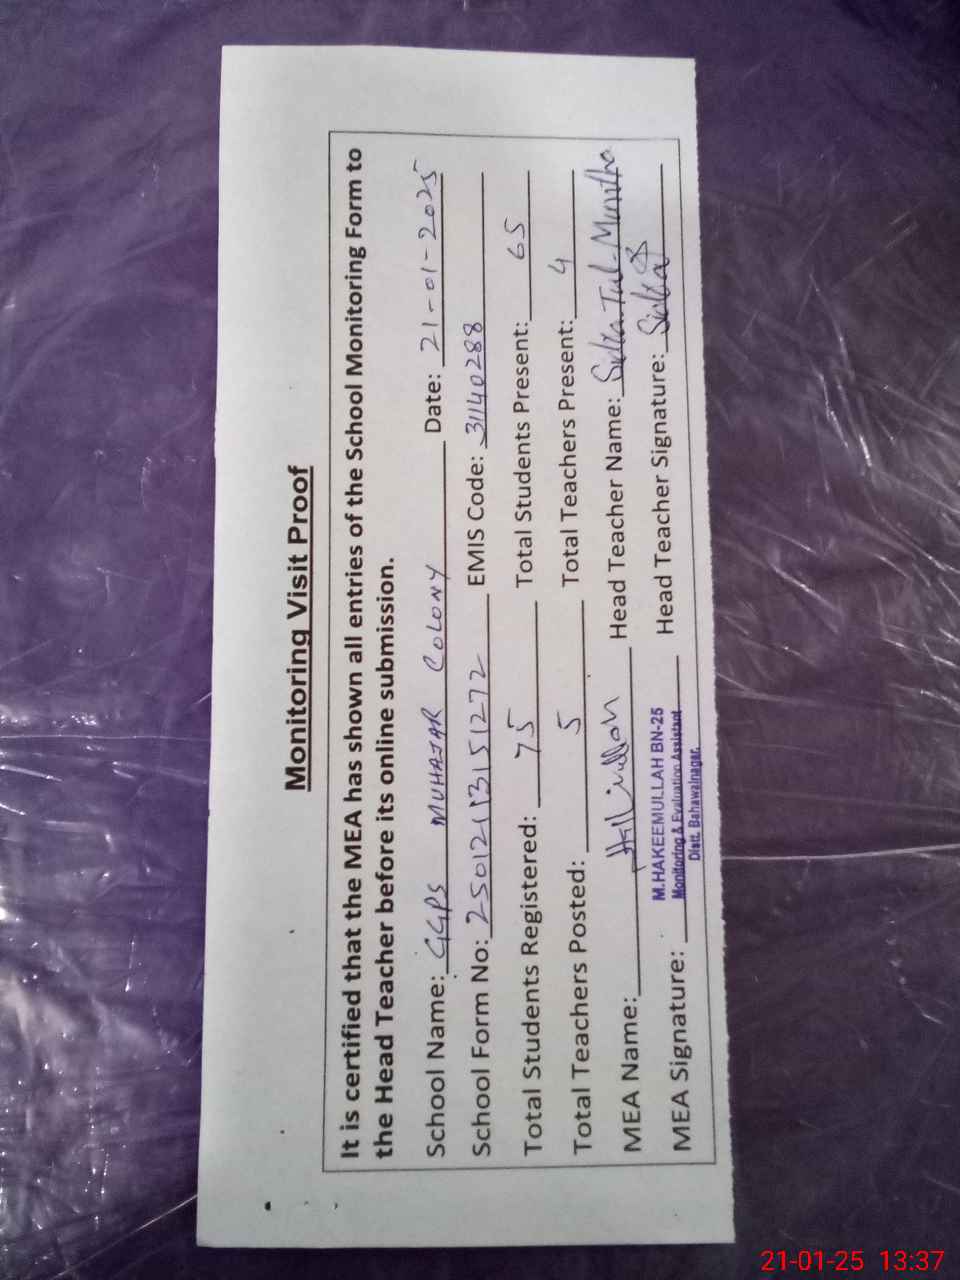 Monitoring Visit Proof
It is certified that the MEA has shown all entries of the School Monitoring Form to
the Head Teacher before its online submission.
School Name: GGPS MUHAJAR COLONY Date: 21-01-2025
School Form No: 2501211315 1272 EMIS Code: 31140288
Total Students Registered: 75 Total Students Present: 65
Total Teachers Posted: 5 Total Teachers Present: 4
MEA Name: Head Teacher Name:
M.HAKEEMULLAH BN-25
Monitoring & Evaluation Assistant
Distt. Bahawalnagar.
MEA Signature: Head Teacher Signature:
21-01-25 13:37